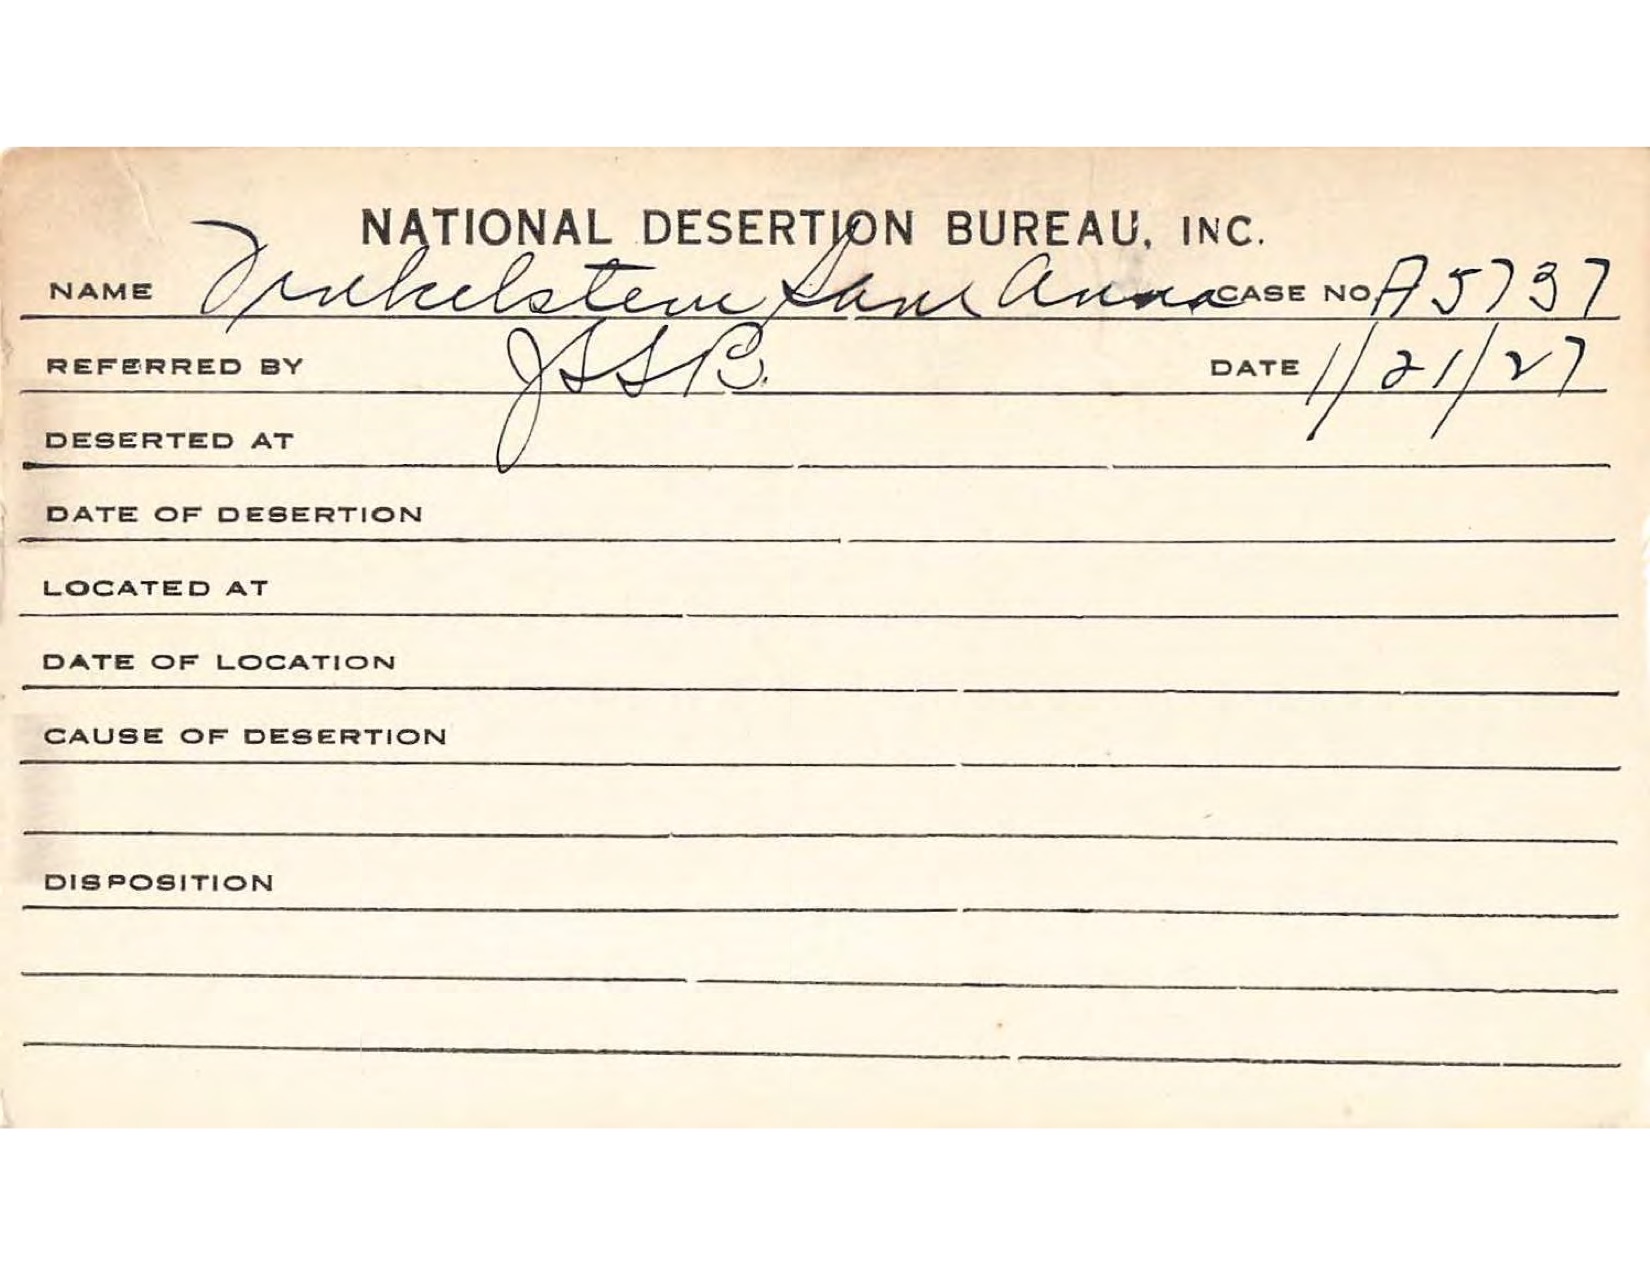 NATIONAL DESERTION BUREAU, INC.
NAME Finkelstein Sam Anna CASE NO. A5737
REFERRED BY JSSB. DATE 1/21/27
DESERTED AT
DATE OF DESERTION
LOCATED AT
DATE OF LOCATION
CAUSE OF DESERTION
DISPOSITION